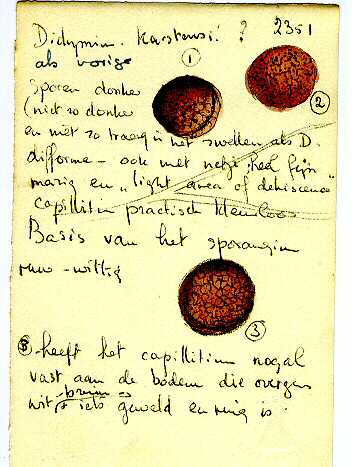 Didymium. Karstensi! ? 2351
als vorige
①
sporen donker
②
(niet zo donker
en niet zo traag in het zwellen als D.
difforme - ook met netje, heel fijn
mazig en „light area of dehiscence"
capillitium practisch kleurloos
Basis van het sporangium
ruw - wittig
③
heeft het capillitium nogal
vast aan de bodem die overgens
wit iets geweld en ruig is.
bruin